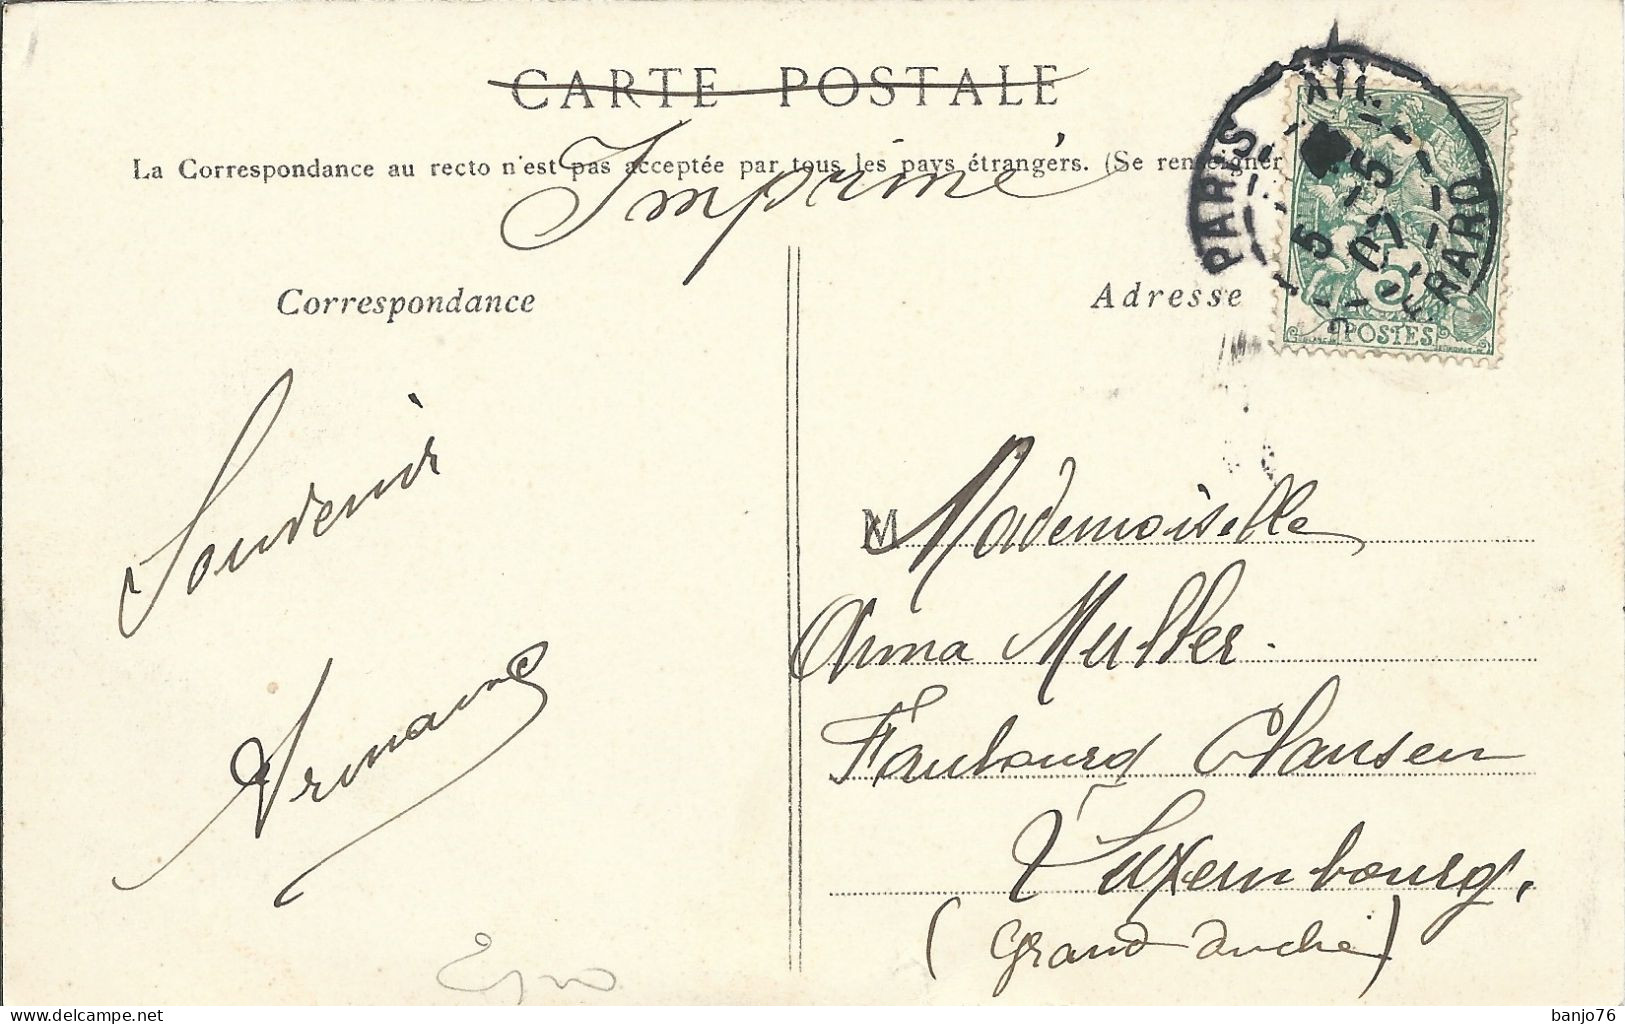 CARTE POSTALE
Imprimé
La Correspondance au recto n'est pas acceptée par tous les pays étrangers. (Se renseigner
PARIS XII
5 5
07
R. ERARD
5
POSTES
Correspondance
Adresse
Souvenir
Armand
M Mademoiselle
Anna Muller.
Faubourg Clausen
Luxembourg,
(Grand duché)
banjo76